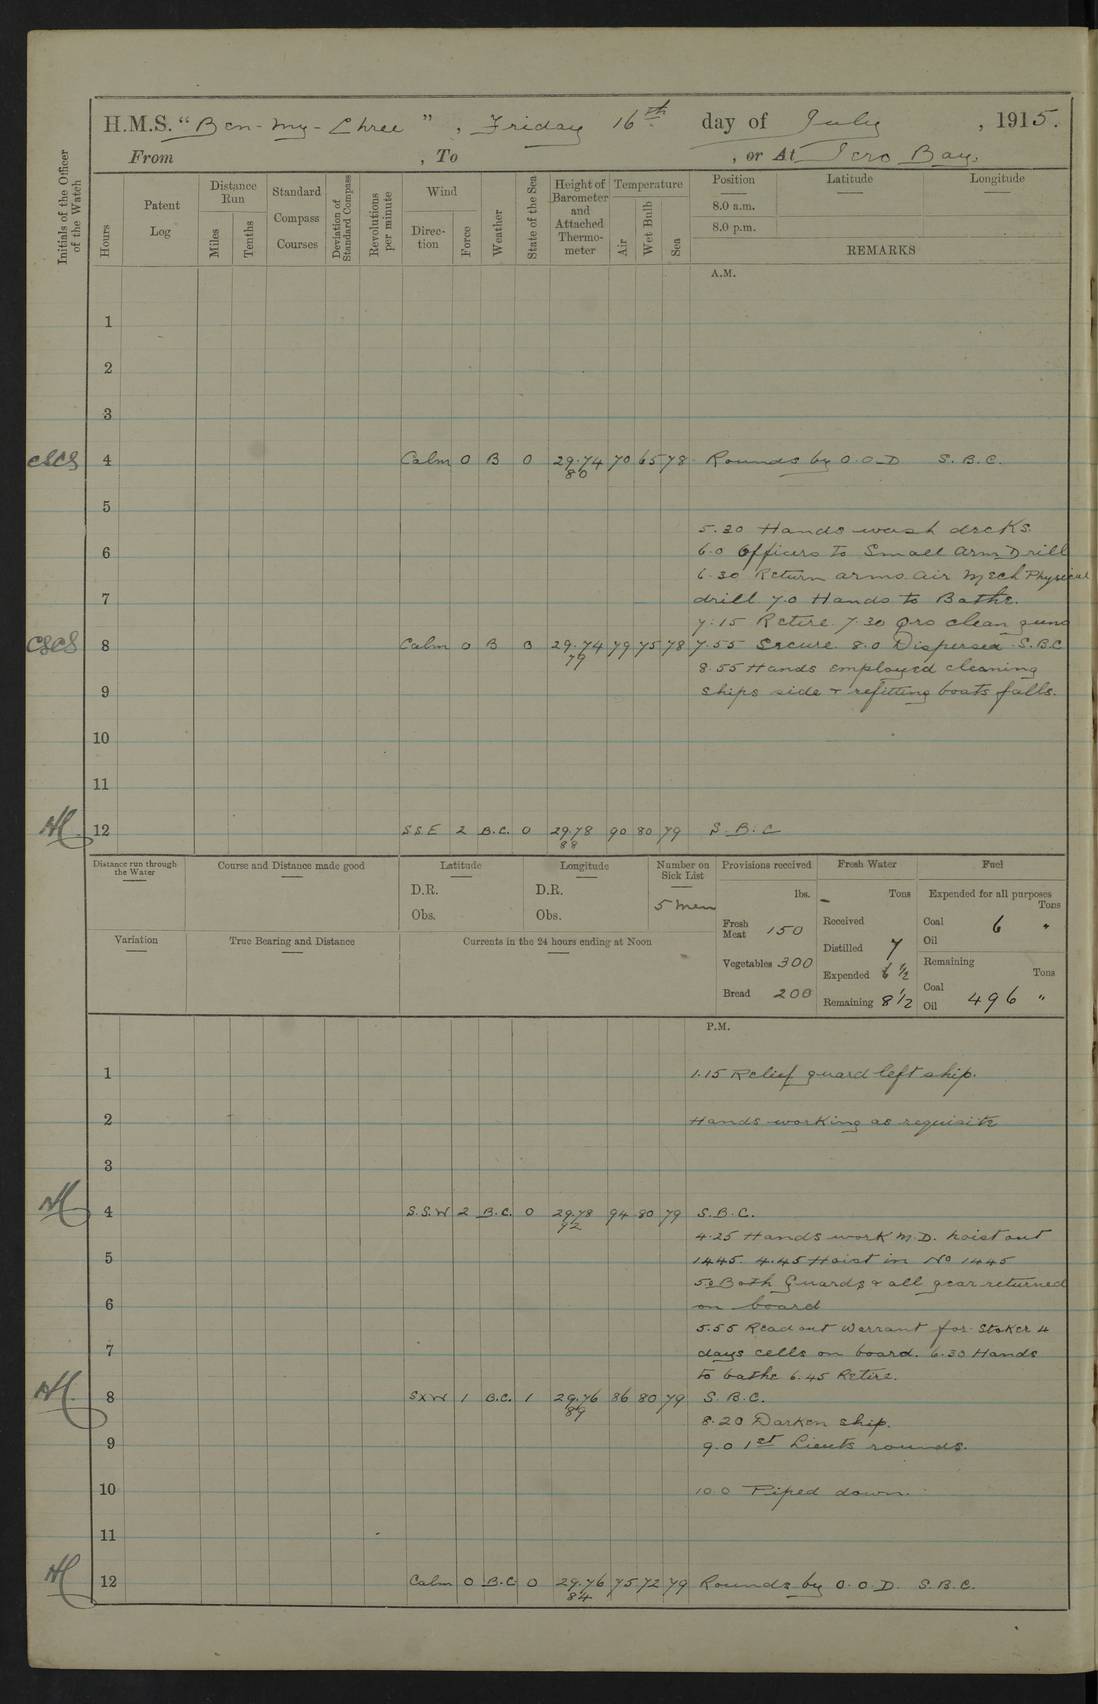 H.M.S. “Ben-my-Chree”, Friday 16th day of July, 1915.
From , To , or At Iero Bay.
Initials of the Officer of the Watch
Hours
Patent Log
Distance Run
Miles
Tenths
Standard Compass Courses
Deviation of Standard Compass
Revolutions per minute
Wind
Direction
Force
Weather
State of the Sea
Height of Barometer and Attached Thermometer
Temperature
Air
Wet Bulb
Sea
Position Latitude Longitude
8.0 a.m.
8.0 p.m.
REMARKS
A.M.
1
2
3
CSCS 4 Calm 0 B 0 29.74 70 65 78 Rounds by O.O.D S.B.C.
80
5
5.30 Hands wash decks.
6 6.0 Officers to Small Arm Drill
6.30 Return arms. Air Mech Physical
7 drill. 7.0 Hands to Bathe.
7.15 Retire. 7.30 Qrs clean guns
CSCS 8 Calm 0 B 0 29.74 79 75 78 7.55 Secure. 8.0 Dispersed S.B.C
79
8.55 Hands employed cleaning
9 ships side & refitting boats falls.
10
11
12 S.S.E 2 B.C. 0 29.78 90 80 79 S.B.C
88
Distance run through the Water
Course and Distance made good
Latitude
D.R.
Obs.
Longitude
D.R.
Obs.
Number on Sick List
5 men
Provisions received
lbs.
Fresh Meat 150
Vegetables 300
Bread 200
Fresh Water
Tons
Received -
Distilled 7
Expended 6 1/2
Remaining 8 1/2
Fuel
Expended for all purposes
Tons
Coal 6 "
Oil
Remaining
Tons
Coal
Oil 496 "
Variation
True Bearing and Distance
Currents in the 24 hours ending at Noon
P.M.
1 1.15 Relief guard left ship.
2 Hands working as requisite
3
4 S.S.W 2 B.C. 0 29.78 94 80 79 S.B.C.
92
4.25 Hands work M.D. hoist out
5 1445. 4.45 Hoist in No 1445
5.0 Both Guards & all gear returned
6 on board
5.55 Read out Warrant for Stoker 4
7 days cells on board. 6.30 Hands
to bathe 6.45 Retire.
8 SxW 1 B.C. 1 29.76 86 80 79 S.B.C.
89
8.20 Darken ship.
9 9.0 1st Lieuts rounds.
10 10.0 Piped down.
11
12 Calm 0 B.C 0 29.76 75 72 79 Rounds by O.O.D. S.B.C.
84